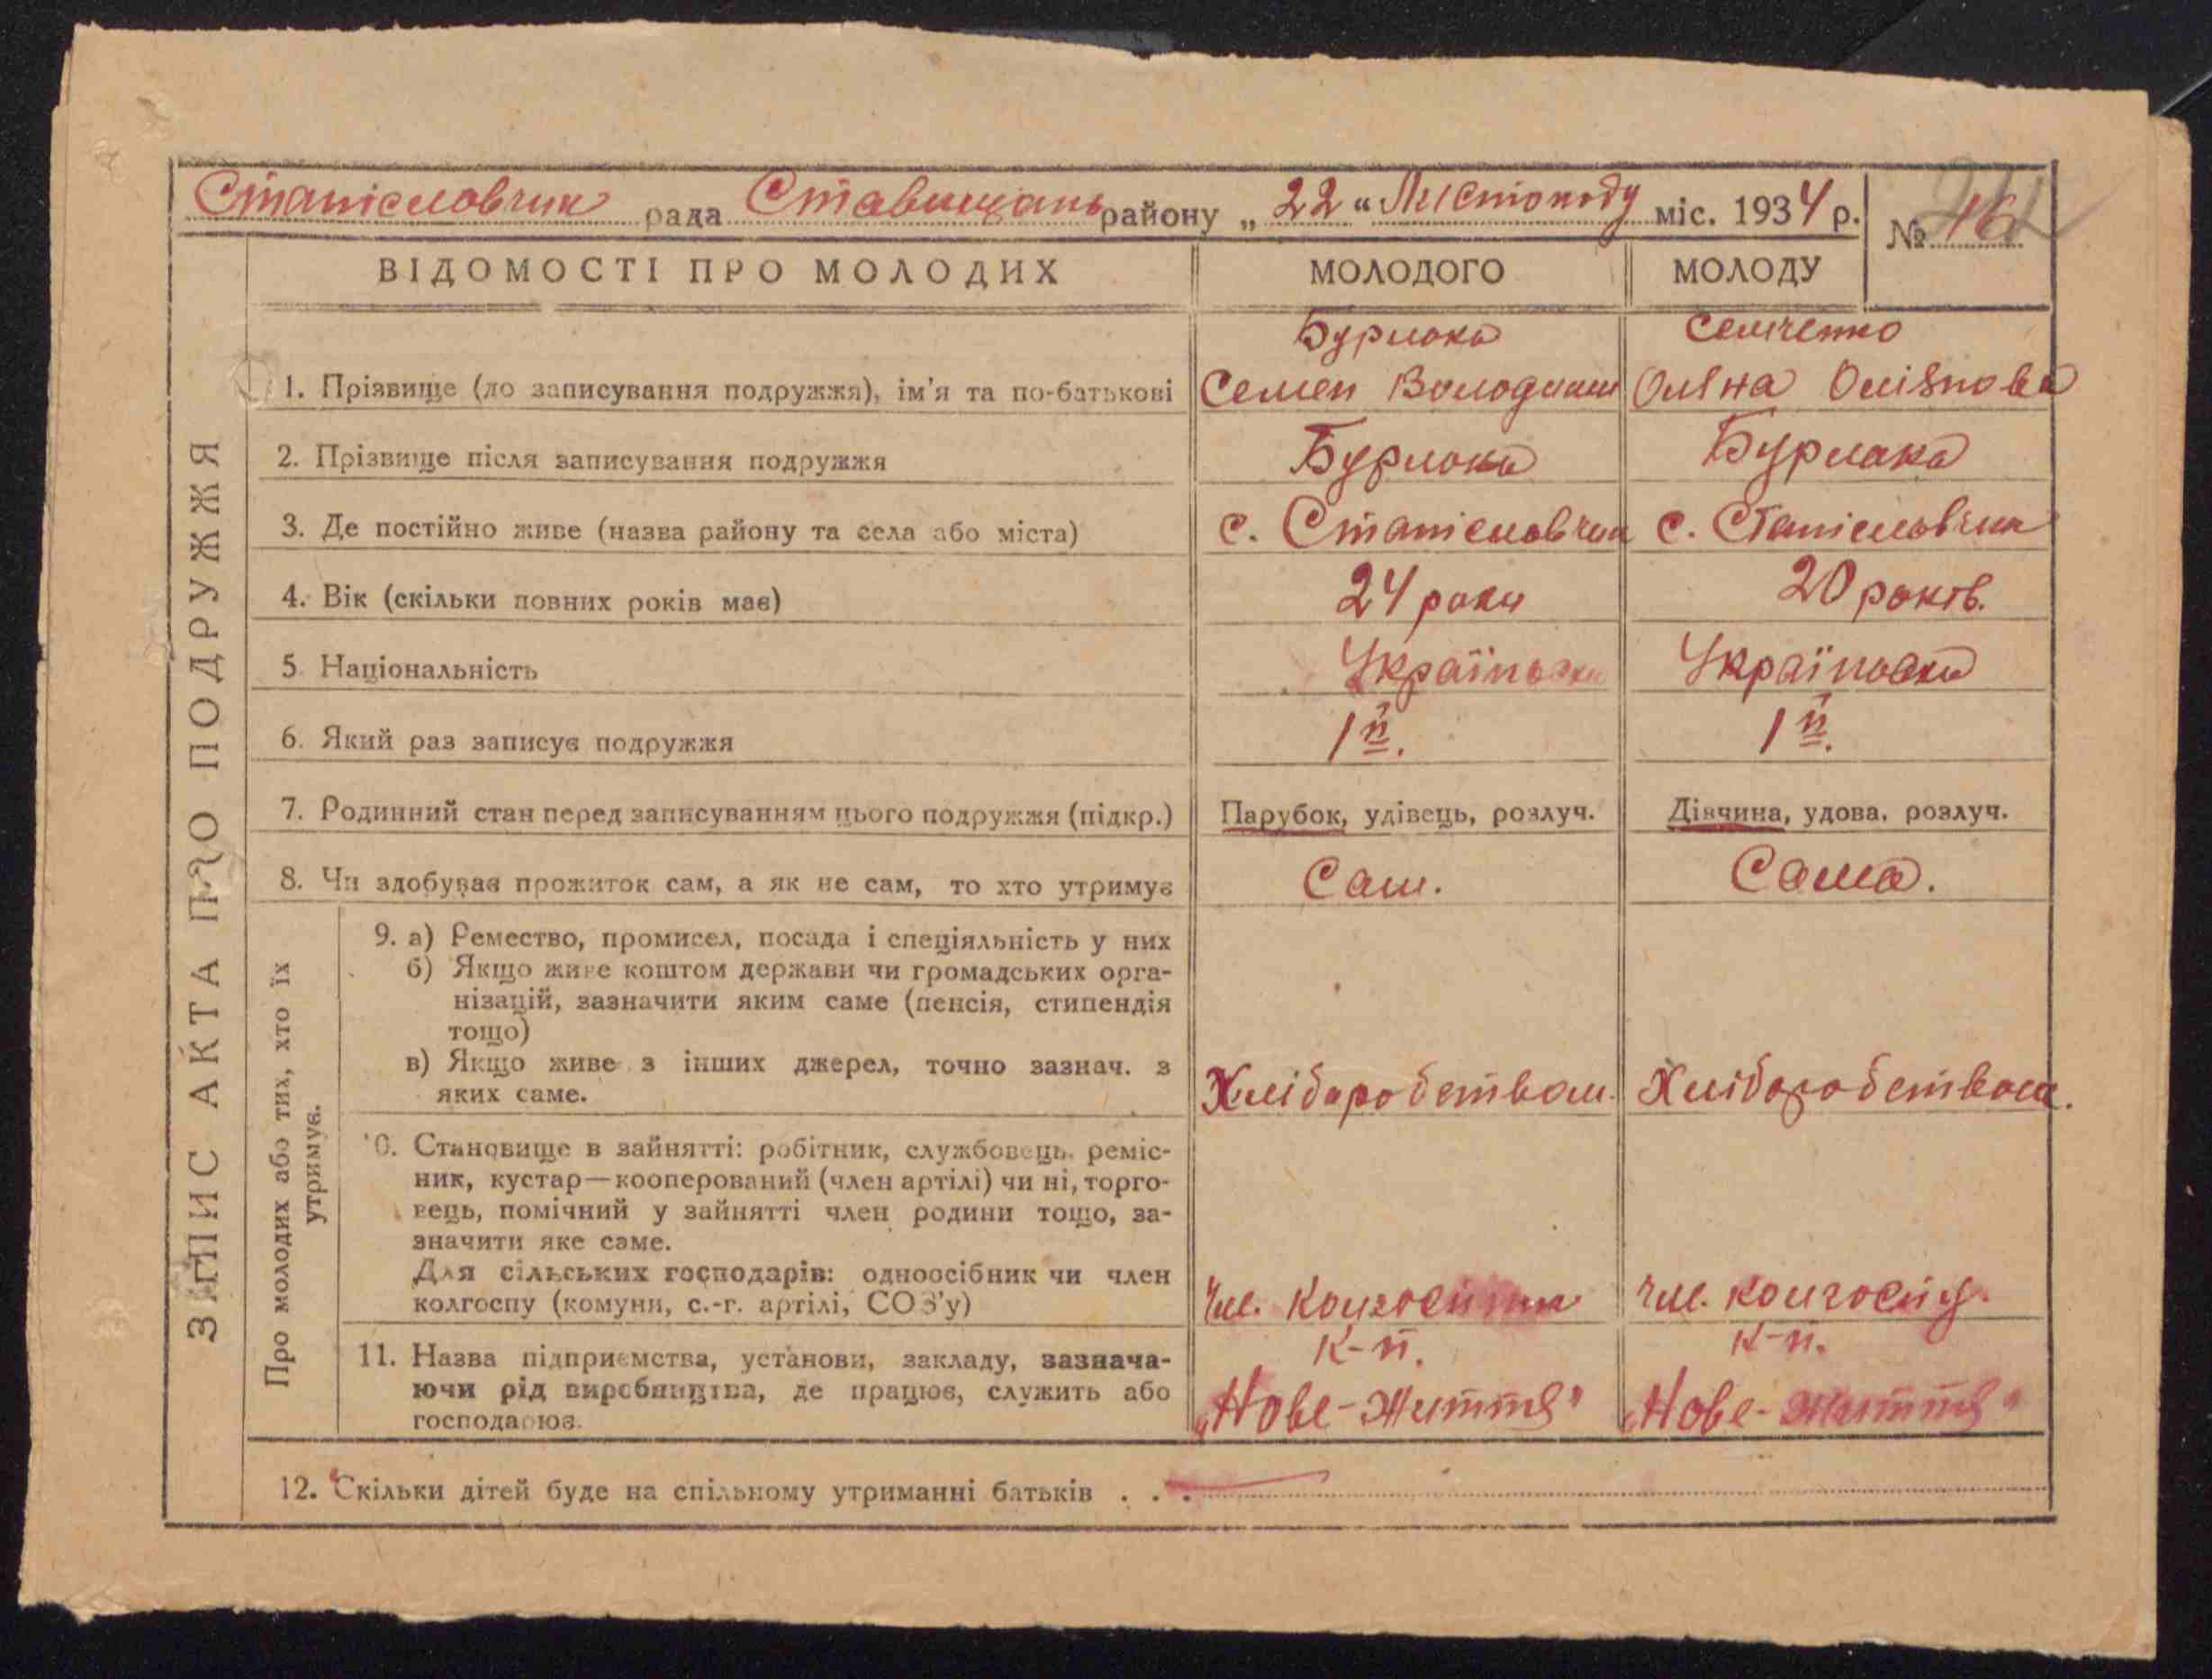 Станіславчик рада Ставищань району „22“ Листопаду міс. 1934 р. № 16
ВІДОМОСТІ ПРО МОЛОДИХ МОЛОДОГО МОЛОДУ
ЗАПИС АКТА ПРО ПОДРУЖЖЯ
Бурлака Семченко
1. Прізвище (до записування подружжя), ім'я та по-батькові Семен Володим Оляна
2. Прізвище після записування подружжя Бурлака Бурлака
3. Де постійно живе (назва району та села або міста) с. Станіславчик с. Станіславчик
4. Вік (скільки повних років має) 24 роки 20 років.
5. Національність Українська Українська
6. Який раз записує подружжя 1й. 1й.
7. Родинний стан перед записуванням цього подружжя (підкр.) Парубок, удівець, розлуч. Дівчина, удова, розлуч.
8. Чи здобував прожиток сам, а як не сам, то хто утримує Сам. Сама.
Про молодих або тих, хто їх
утримує.
9. а) Ремество, промисел, посада і спеціяльність у них
б) Якщо живе коштом держави чи громадських орга-
нізацій, зазначити яким саме (пенсія, стипендія
тощо)
в) Якщо живе з інших джерел, точно зазнач. з
яких саме. Хліборобством. Хліборобством.
10. Становище в зайнятті: робітник, службовець, реміс-
ник, кустар—кооперований (член артілі) чи ні, торго-
вець, помічний у зайнятті член родини тощо, за-
значити яке саме.
Для сільських господарів: одноосібник чи член
колгоспу (комуни, с.-г. артілі, СОЗ'у) чл. чл. колгоспу.
11. Назва підприємства, установи, закладу, зазнача- к-п. к-п.
ючи рід виробництва, де працює, служить або „Нове-Життя" „Нове-Життя"
господарює.
12. Скільки дітей буде на спільному утриманні батьків . . .